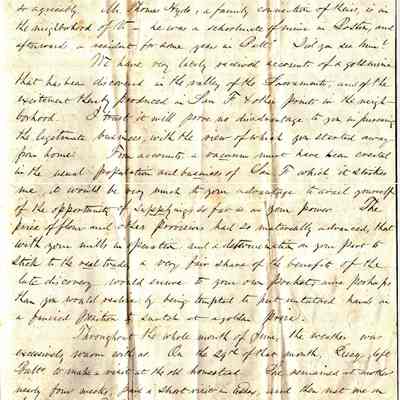 so agreeably. Mr. Thomas Hyde, a family connection of theirs, is in
the neighborhood of it – he was a schoolmate of mine in Boston, and
afterwards a resident for some years in Balto. Did you see him?
We have very lately received accounts of a gold mine
that has been discovered in the valley of the Sacramento, and of the
excitement thereby produced in San F & other points in the neigh-
borhood. I trust it will prove no disadvantage to you in pursuing
the legitimate business, with the view of which you started away
from home. From accounts a vacuum must have been created
in the usual population and business of San F which it strikes
me, it would be very much to your advantage to avail yourself
of the opportunity of supplying so far as in your power. The
price of flour and other provisions had so materially advanced, that
with your mills in operation and a determination on your part to
stick to the real trade a very fair share of the benefit of the
late discovery would enure to your own pocket, nine perhaps
than you would realize by being tempted to put untutored hands in
a fancied position to snatch at a golden prize.
Throughout the whole month of June, the weather was
excessively warm with us. On the 29th of that month, left
Balto to make a visit at the old homestead. She remained at mothers
nearly four weeks, paid a short visit to and then met me on